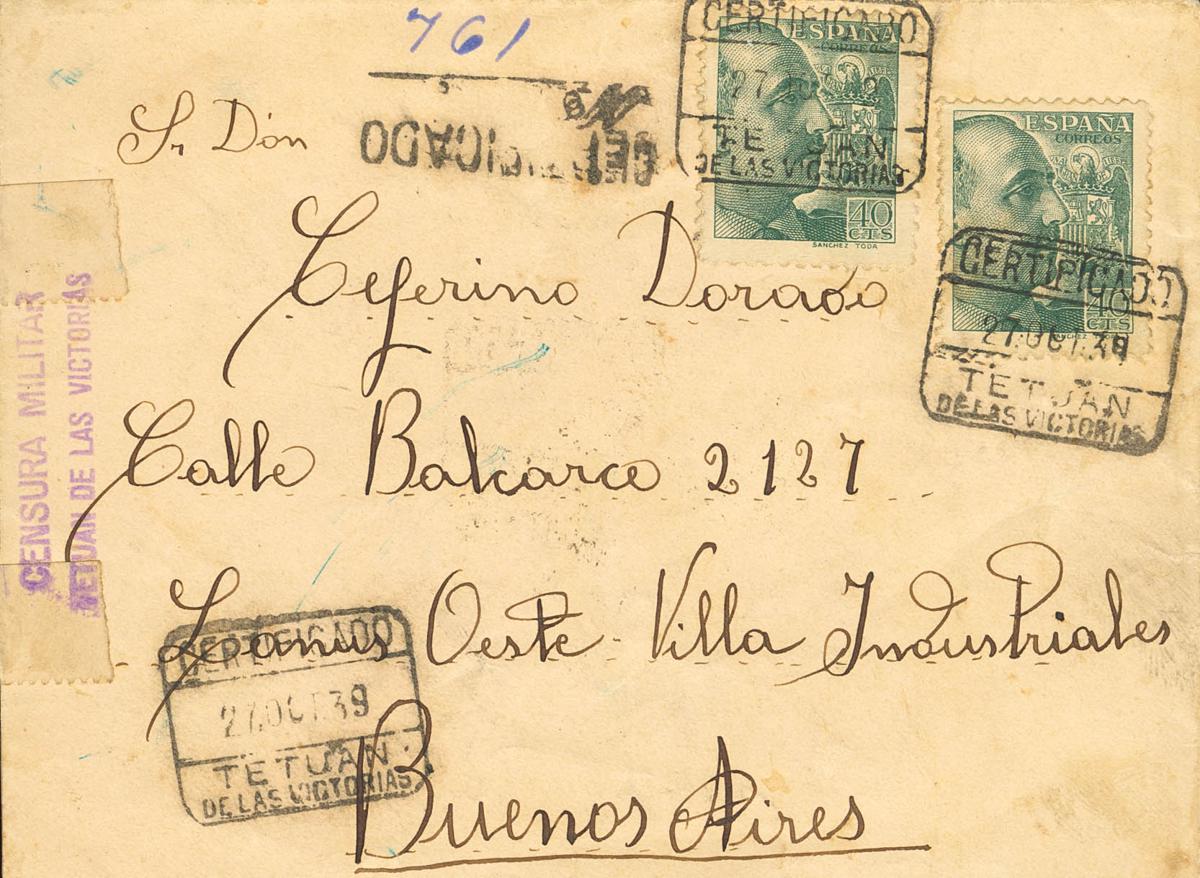 761
Nº
CERTIFICADO
Sr Dón
Ceferino Dorado
Calle Balcarce 2127
Lanus Oeste Villa Industriales
Buenos Aires
CERTIFICADO
TETUAN
DE LAS VICTORIAS
ESPAÑA
CORREOS
40
CTS
SANCHEZ TODA
ESPAÑA
CORREOS
40
CTS
SANCHEZ TODA
CERTIFICADO
27.OCT.39
TETUAN
DE LAS VICTORIAS
CENSURA MILITAR
TETUAN DE LAS VICTORIAS
CERTIFICADO
27.OCT.39
TETUAN
DE LAS VICTORIAS